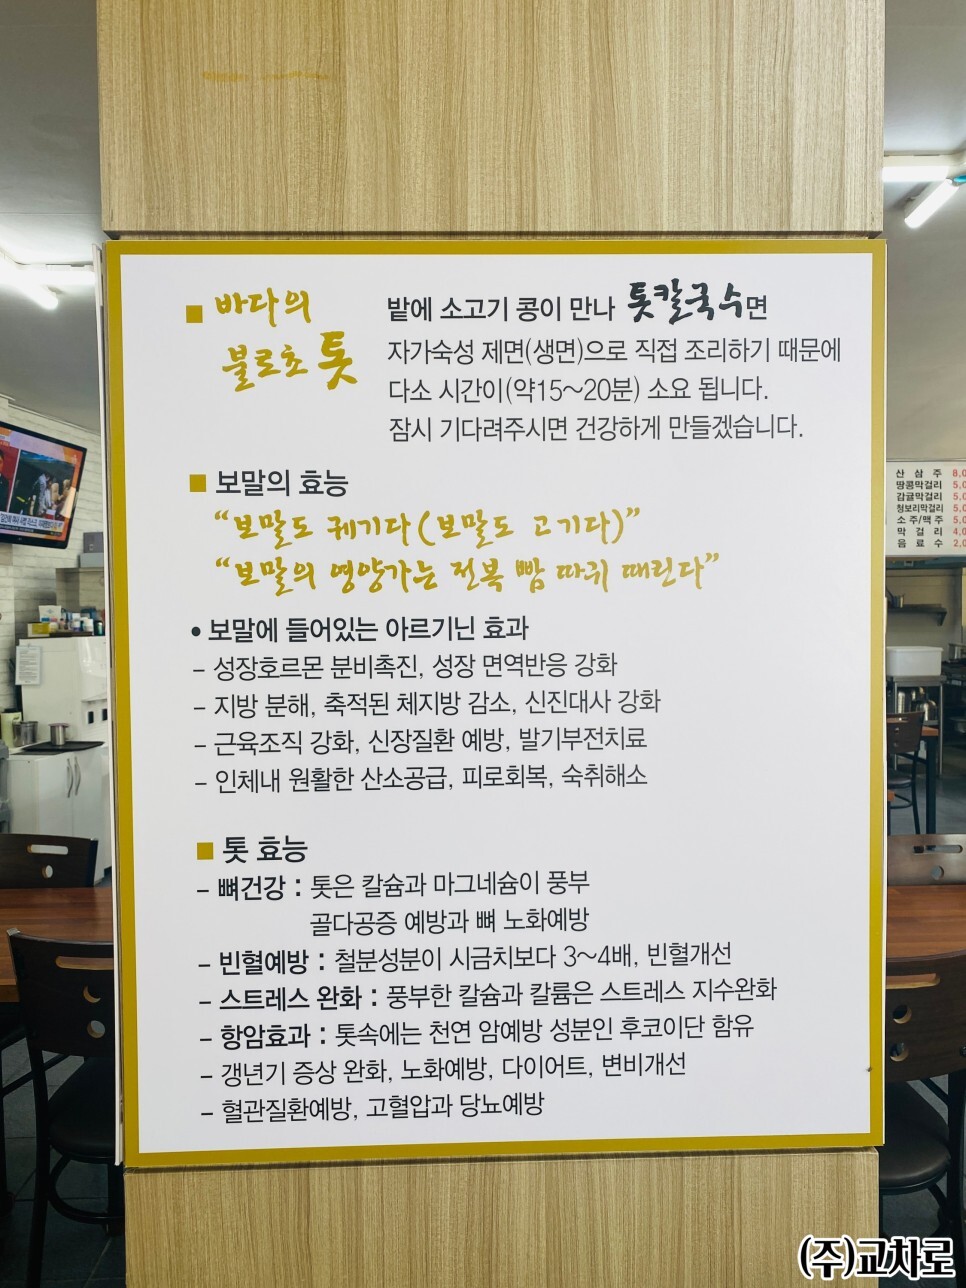 바다의
불로초 톳
밭에 소고기 콩이 만나 톳칼국수면
자가숙성 제면(생면)으로 직접 조리하기 때문에
다소 시간이(약15~20분) 소요 됩니다.
잠시 기다려주시면 건강하게 만들겠습니다.
보말의 효능
“보말도 궤기다(보말도 고기다)”
“보말의 영양가는 전복 빰 따귀 때린다”
• 보말에 들어있는 아르기닌 효과
– 성장호르몬 분비촉진, 성장 면역반응 강화
– 지방 분해, 축적된 체지방 감소, 신진대사 강화
– 근육조직 강화, 신장질환 예방, 발기부전치료
– 인체내 원활한 산소공급, 피로회복, 숙취해소
톳 효능
– 뼈건강 : 톳은 칼슘과 마그네슘이 풍부
골다공증 예방과 뼈 노화예방
– 빈혈예방 : 철분성분이 시금치보다 3~4배, 빈혈개선
– 스트레스 완화 : 풍부한 칼슘과 칼륨은 스트레스 지수완화
– 항암효과 : 톳속에는 천연 암예방 성분인 후코이단 함유
– 갱년기 증상 완화, 노화예방, 다이어트, 변비개선
– 혈관질환예방, 고혈압과 당뇨예방
산 삼 주 8,0
땅콩막걸리 5,0
감귤막걸리 5,0
청보리막걸리 5,0
소 주/맥 주 5,0
막 걸 리 4,0
음 료 수 2,0
(주)교차로